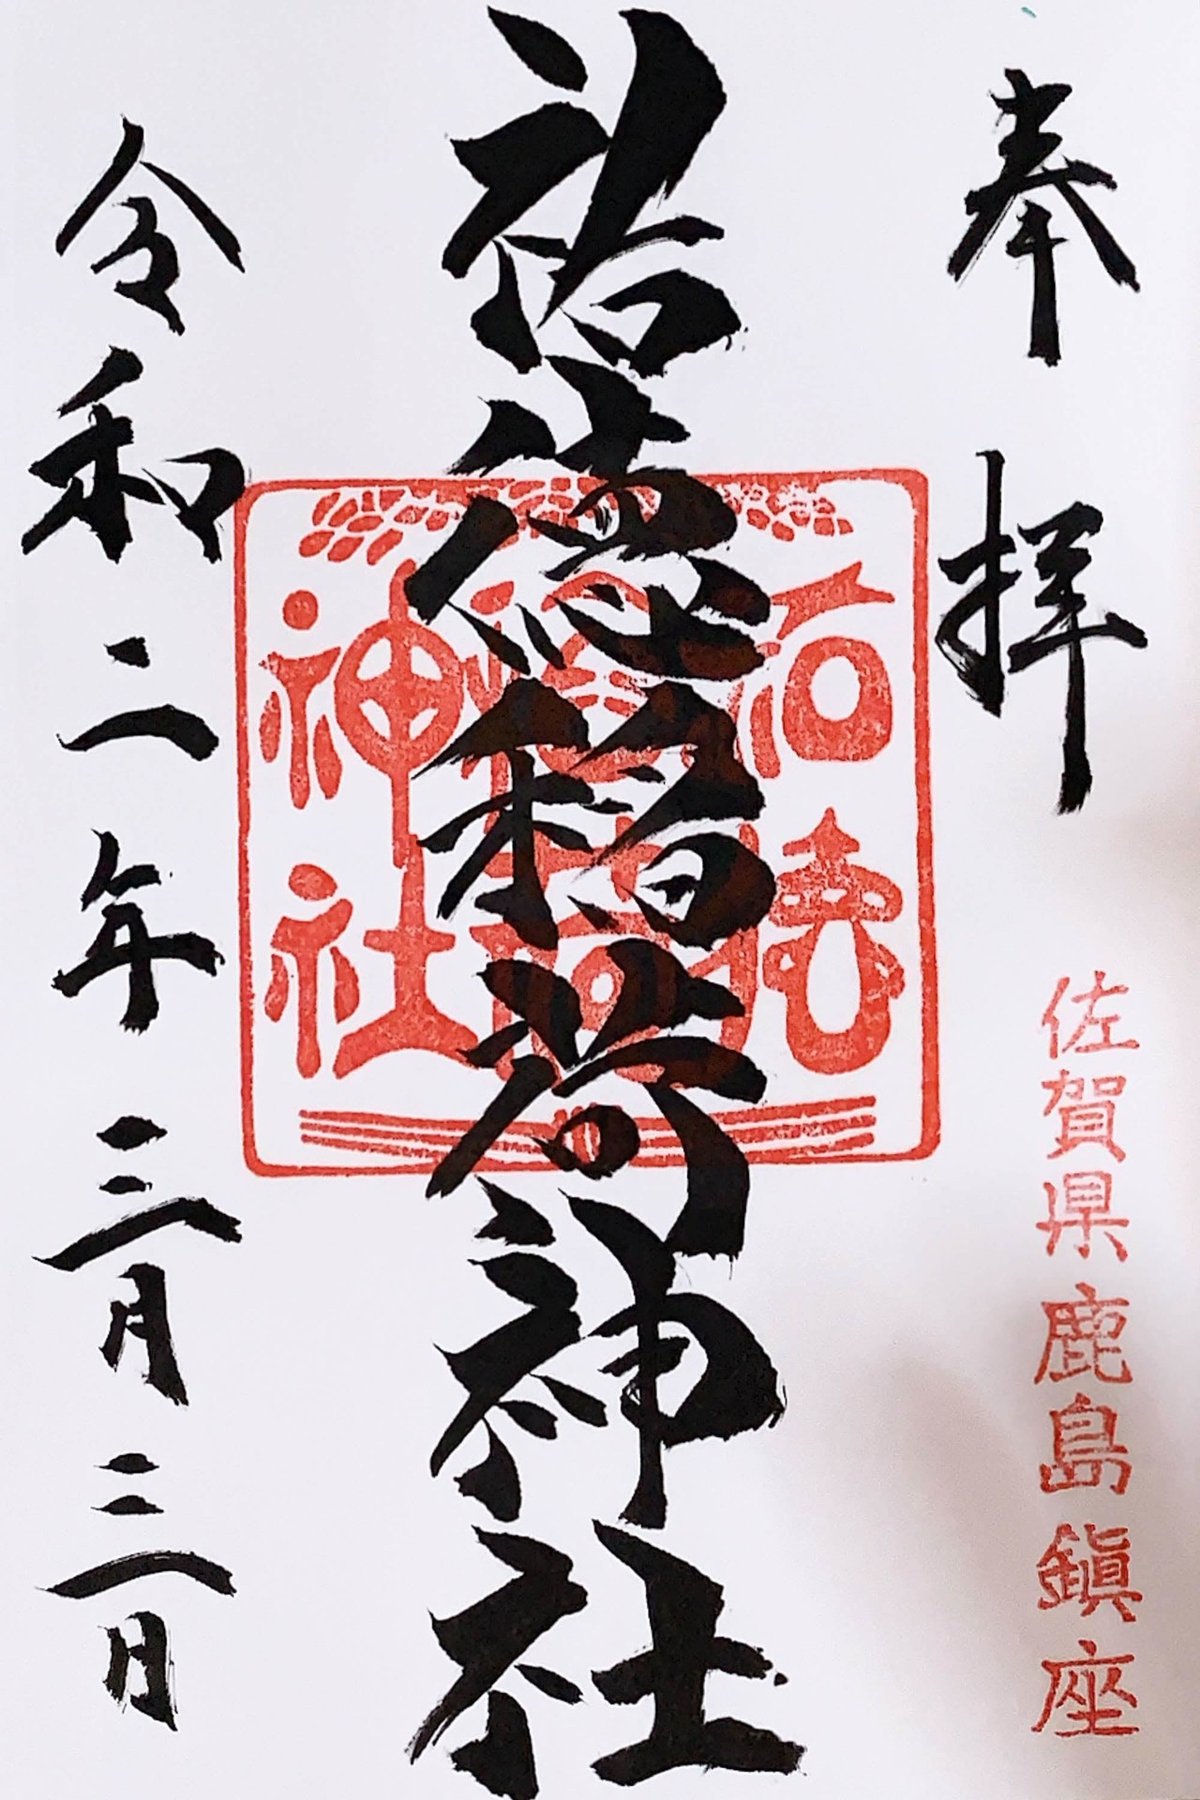 奉拝
佐賀県鹿島鎮座
祐徳稲荷神社
祐徳
稲荷
神社
令和二年三月三日